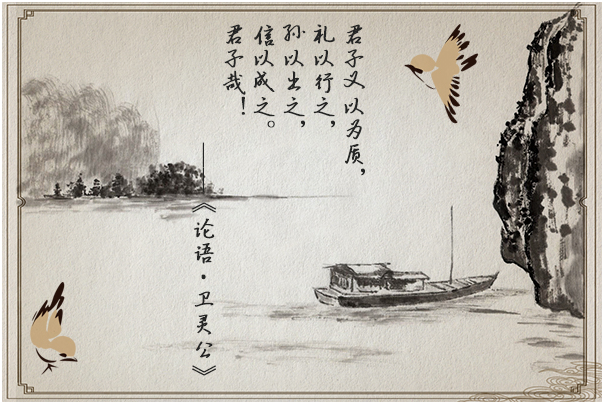 君子义以为质，
礼以行之，
孙以出之，
信以成之。
君子哉！
《论语·卫灵公》